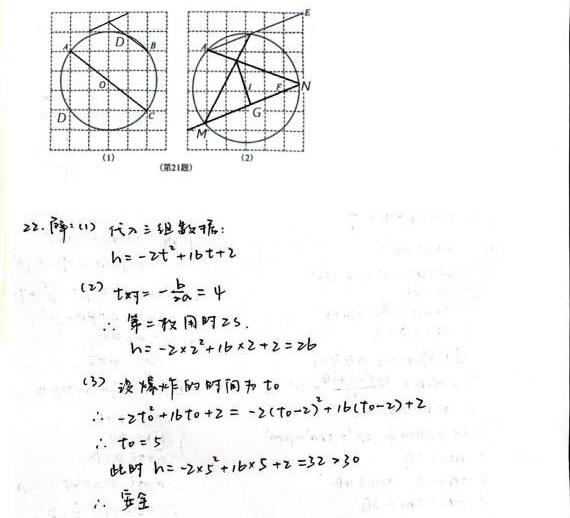 E
A
D
B
O
D
C
A
I
F
N
G
M
(1)
(2)
(第21题)
22. 解:(1) 代入三组数据:
h=-2t²+16t+2
(2) t对=-b/2a=4
∴ 第二枚用时2s.
h=-2×2²+16×2+2=26
(3) 设爆炸的时间为t₀
∴ -2t₀²+16t₀+2=-2(t₀-2)²+16(t₀-2)+2
∴ t₀=5
此时 h=-2×5²+16×5+2=32>30
∴ 安全